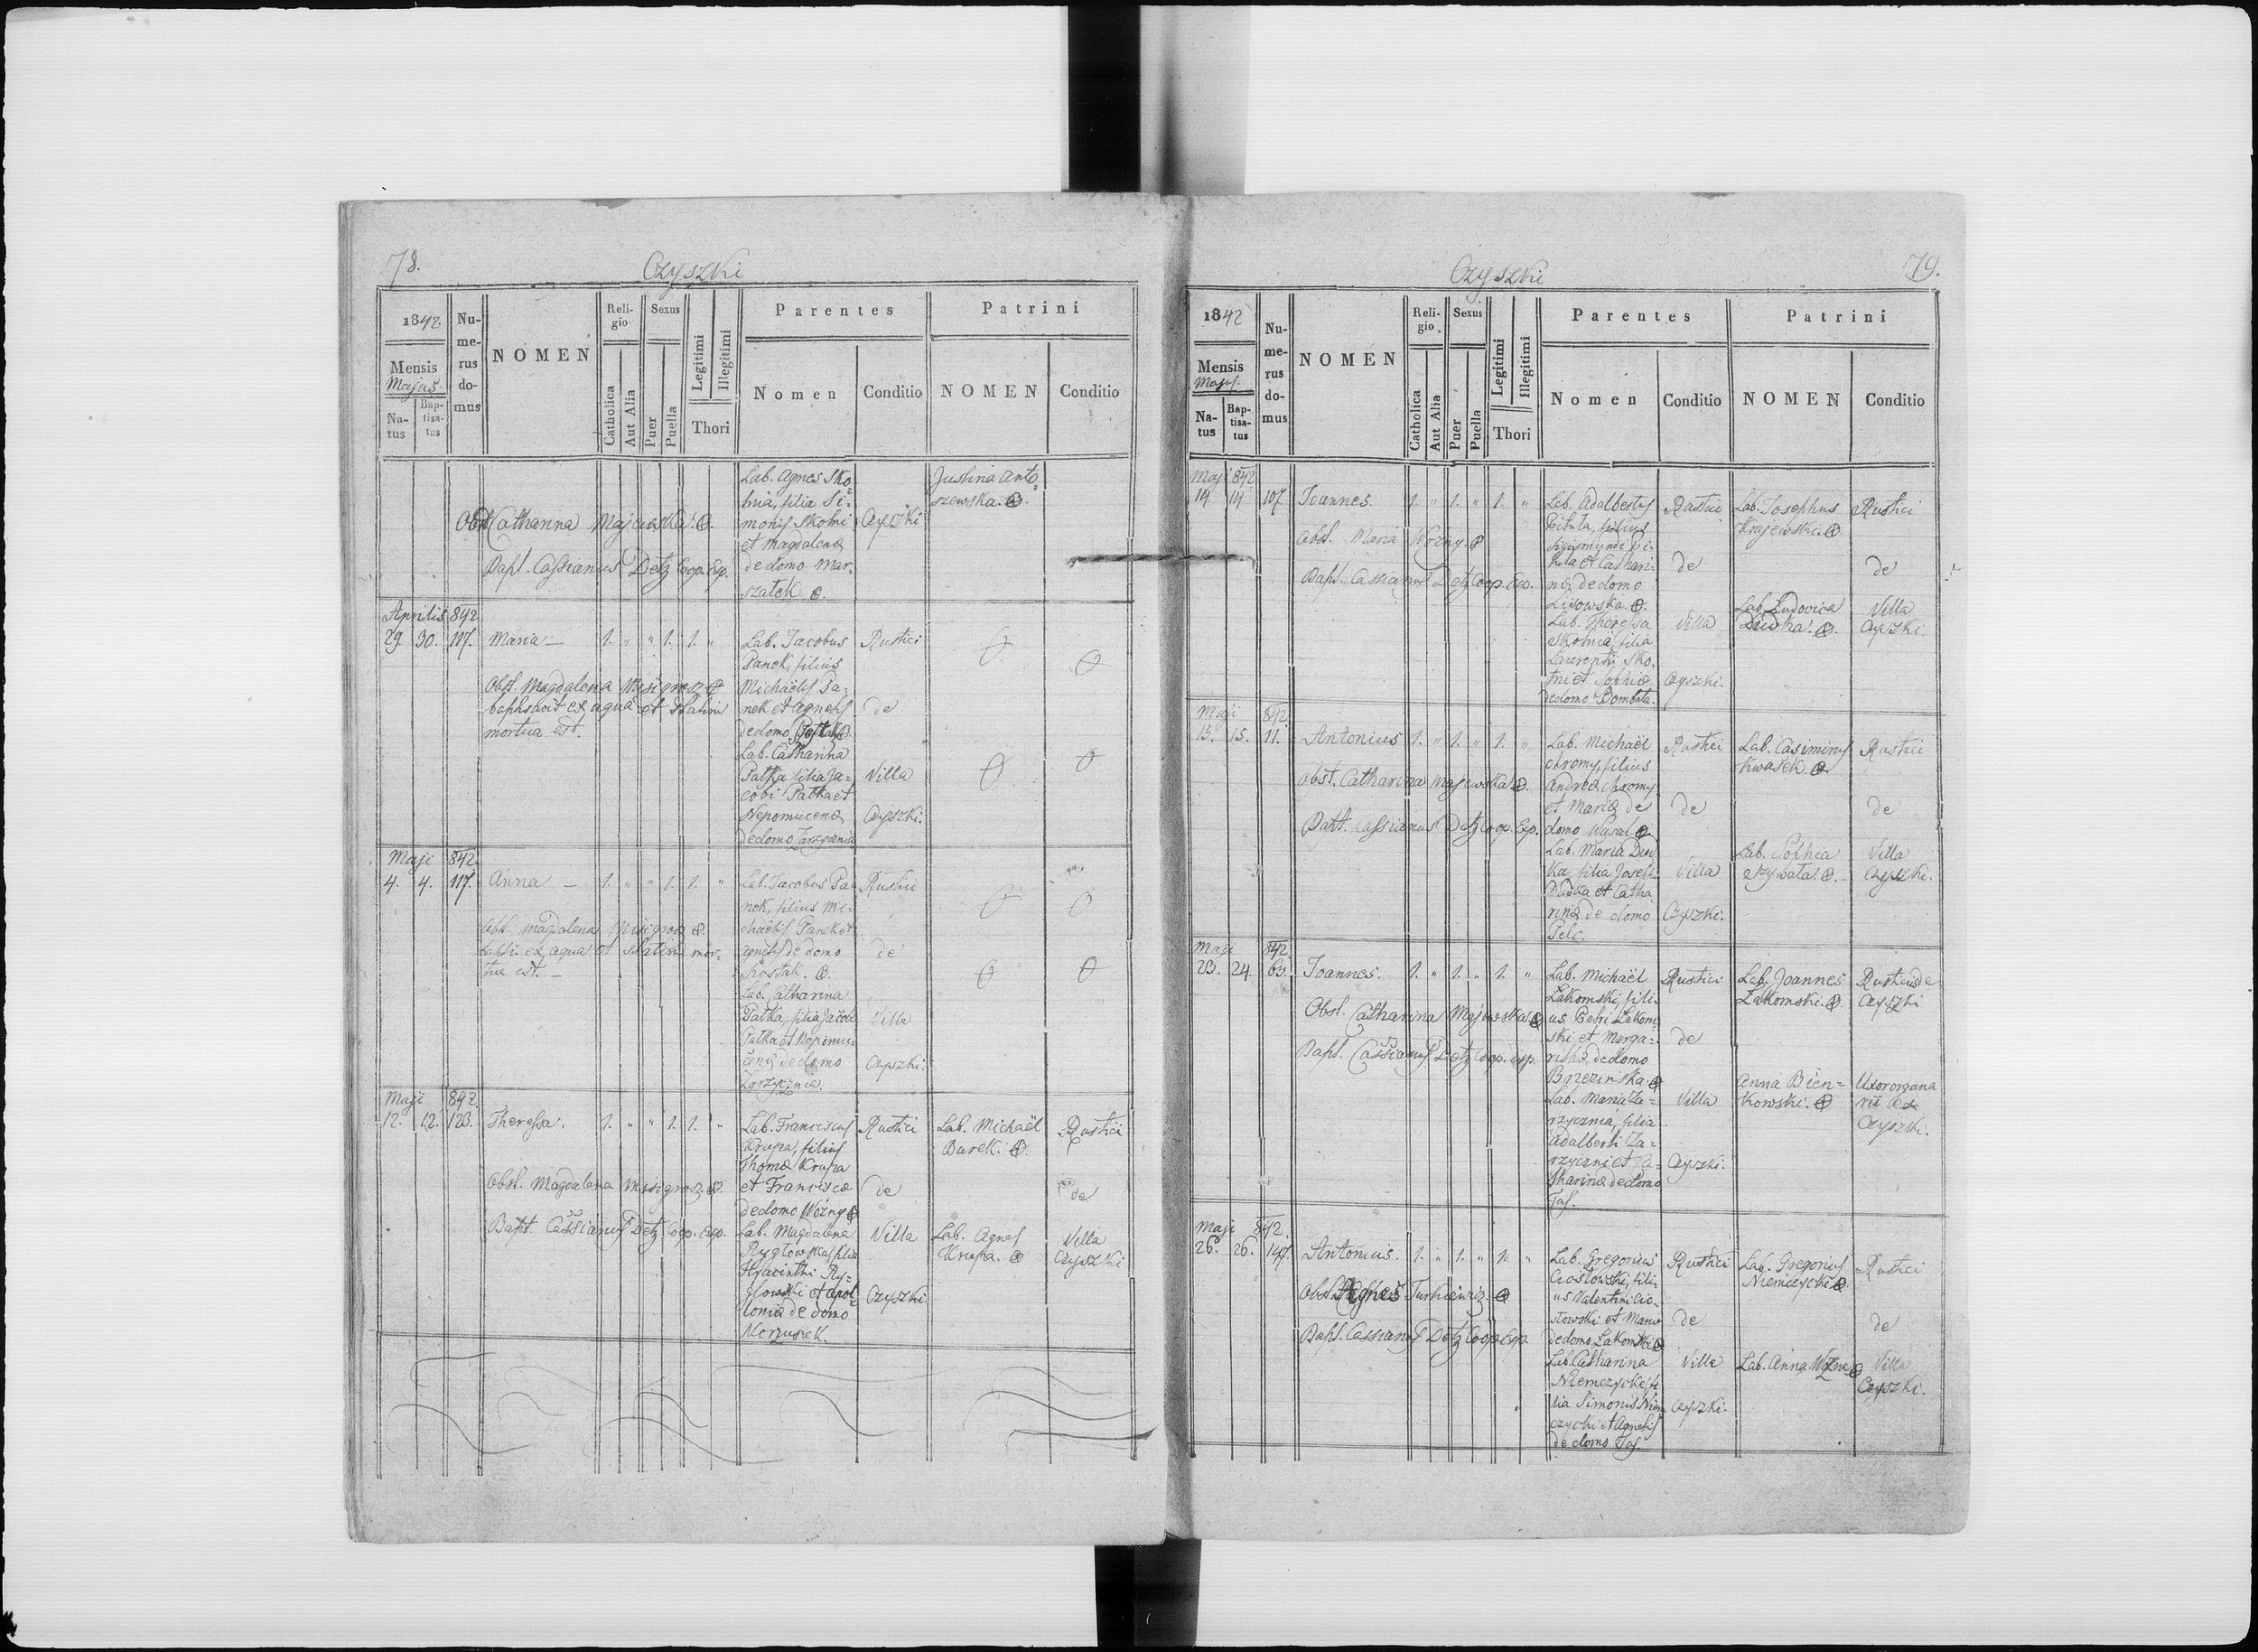 78.
Czyszki
1842.
Mensis
Majus.
Na-
tus
Bap-
tisa-
tus
Nu-
me-
rus
do-
mus
NOMEN
Reli-
gio
Catholica
Aut Alia
Sexus
Puer
Puella
Legitimi
Illegitimi
Thori
Parentes
Nomen
Conditio
Patrini
NOMEN
Conditio
Lab. Agnes Sko-
tnia, filia Si-
monis Skotni
et Magdalena
de domo Mar-
szatek
Czyszki
Justina Anto-
szewska.
Obst. Catharina Majewska.
Bapt. Cassianus Detz Coop. Exp.
Aprilis 842
29. 30. 117. Maria — 1. " " 1. 1. "
Obst. Magdalena Misigroz
baptisavit ex aqua et statim
mortua est.
Lab. Jacobus
Panek, filius
Michaëlis Pa-
nek et Agnetis
de domo
Lab. Catharina
Patka filia Ja-
cobi Patka et
Nepomucena
de domo Zarzycznia
Rustici
de
Villa
Czyszki.
Maji 842.
4. 4. 117. Anna — 1. " " 1. 1. "
Obst. Magdalena Misigroz
bapti. ex aqua et statim mor-
tua est. —
Lab. Jacobus Pa-
nek, filius Mi-
chaëlis Panek et
Agnetis de domo
Szostak.
Lab. Catharina
Patka, filia Jacobi
Patka et Nepomu-
cena de domo
Zarzycznia.
Rustici
de
Villa
Czyszki.
Maji 842.
12. 12. 123. Theressa. 1. " " 1. 1. "
Obst. Magdalena Misigroz
Bapt. Cassianus Detz Coop. Exp.
Lab. Franciscus
Krupa, filius
Thoma Krupa
et Francisca
de domo Wozny
Lab. Magdalena
Rygtowska, filia
Hyacinthi Ry-
gtowski et Apol-
lonia de domo
Rustici
de
Villa
Czyszki.
Lab. Michaël
Burek.
Lab. Agnes
Krupa.
Rustici
de
Villa
Czyszki
79.
Czyszki
1842
Mensis
Majus.
Na-
tus
Bap-
tisa-
tus
Nu-
me-
rus
do-
mus
NOMEN
Reli-
gio.
Catholica
Aut Alia
Sexus
Puer
Puella
Legitimi
Illegitimi
Thori
Parentes
Nomen
Conditio
Patrini
NOMEN
Conditio
Maji 842
14 14 107. Joannes. 1. " 1. " 1. "
Obst. Maria Wozny.
Bapt. Cassianus Detz Coop. Exp.
Lab. Adalbertus
filius
Sigismundi
et Cathari-
na de domo
Lisowska.
Lab. Theressa
Skotnia, filia
Laurentii Sko-
tni et Sophia
de domo Bombata.
Rustici
de
Villa
Czyszki.
Lab. Josephus
Krajewski.
Lab. Ludovica
Rustici
de
Villa
Czyszki.
Maji 842.
15. 15. 11. Antonius 1. " 1. " 1. "
Obst. Catharina Majewska.
Bapt. Cassianus Detz Coop. Exp.
Lab. Michaël
Chromy, filius
Andrea Chromy
et Maria de
domo
Lab. Maria Dud-
ka, filia Josephi
Dudka et Catha-
rina de domo
Pelc.
Rustici
de
Villa
Czyszki.
Lab. Casimirus
Kwasek
Lab. Sophia
Rustici
de
Villa
Czyszki.
Maji 842.
23. 24. 63. Joannes. 1. " 1. " 1. "
Obst. Catharina Majewska
Bapt. Cassianus Detz Coop. Exp.
Lab. Michaël
Łakomski, fili-
us Petri Łakom-
ski et Marga-
ritha de domo
Brzezinska.
Lab. Maria Za-
rzycznia, filia
Adalberti Za-
rzyczni et Ca-
tharina de domo
Jas.
Rustici
de
Villa
Czyszki.
Lab. Joannes
Łakomski.
Anna Bien-
kowski.
Rusticus de
Czyszki
Uxor organa
rii ex
Czyszki.
Maji 842.
26. 26. 147. Antonius. 1. " 1. " 1. "
Obst. Agnes Turkiewicz.
Bapt. Cassianus Detz Coop. Exp.
Lab. Gregorius
Ciostowski, fili-
us Valentini Cio-
stowski et Maria
de domo Łakomska
Lab. Catharina
Niemczycka, fi-
lia Simonis Niem-
czycki et Agnetis
de domo Jas.
Rustici
de
Villa
Czyszki.
Lab. Gregorius
Niemczycki
Lab. Anna Wozna
Rustici
de
Villa
Czyszki.